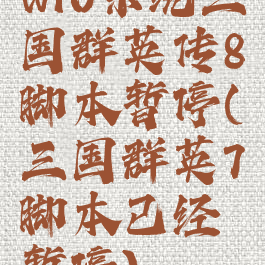 W10系统三
国群英传8
脚本暂停(
三国群英7
脚本已经
暂停)